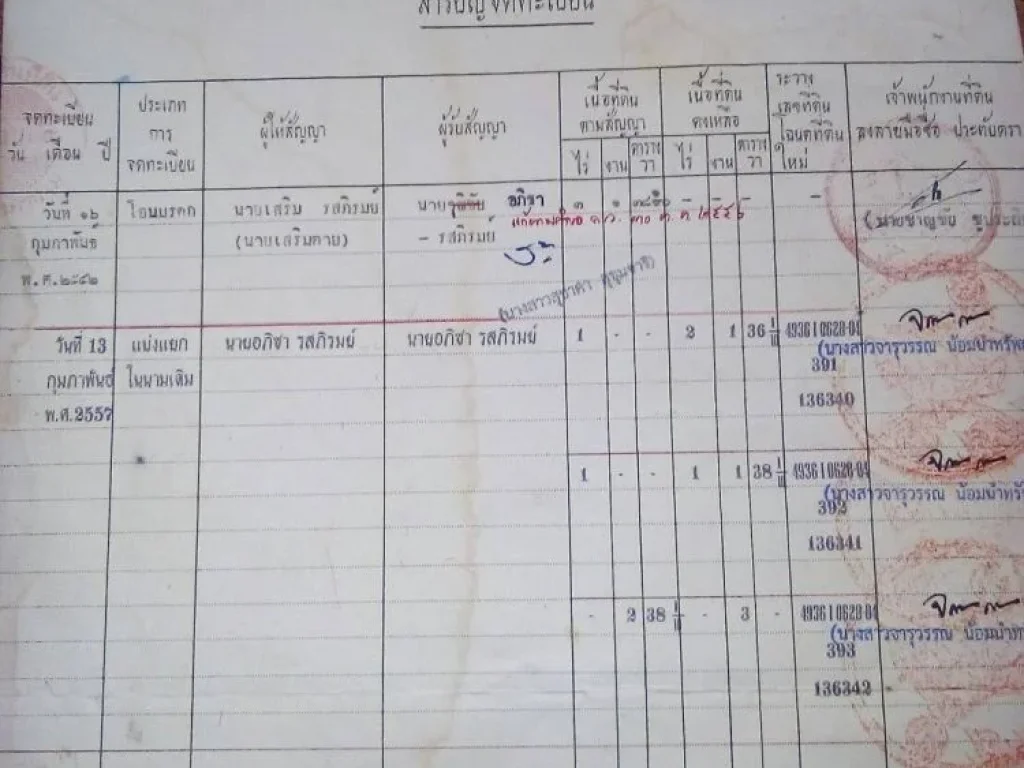 สารบัญจดทะเบียน
จดทะเบียน
วัน เดือน ปี
ประเภท
การ
จดทะเบียน
ผู้ให้สัญญา
ผู้รับสัญญา
เนื้อที่ดิน
ตามสัญญา
ไร่ งาน ตาราง
วา
เนื้อที่ดิน
คงเหลือ
ไร่ งาน ตาราง
วา
ระวาง
เลขที่ดิน
โฉนดที่ดิน
ใหม่
เจ้าพนักงานที่ดิน
ลงลายมือชื่อ ประทับตรา
วันที่ ๑๖ โอนมรดก นายเสริม รสภิรมย์ นาย อภิชา ๓ ๑ - - - -
กุมภาพันธ์ (นายเสริมตาย) - รสภิรมย์
พ.ศ.๒๕๔๒
วันที่ 13 แบ่งแยก นายอภิชา รสภิรมย์ นายอภิชา รสภิรมย์ 1 - - 2 1 36 4936 I 0628-04
(นางสาวจารุวรรณ น้อมนำทรัพย์
391
กุมภาพันธ์ ในนามเดิม
136340
พ.ศ.2557
1 - - 1 1 38 4936 I 0628-04
(นางสาวจารุวรรณ น้อมนำทรั
392
136341
- 2 38 - 3 - 4936 I 0628-04
(นางสาวจารุวรรณ น้อมนำท
393
136342